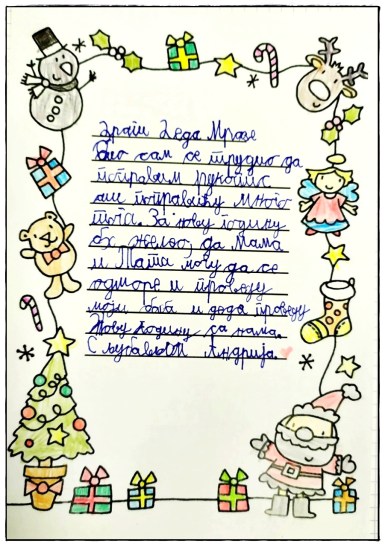 Драги Деда Мразе
Био сам се трудио да
поправим рукопис
али поправићу много
тога. За нову годину
бих желео да мама
и Тата могу да се
одморе и проведу
моји баба и деда проведу
Нову годину са нама.
С љубављом Андрија.